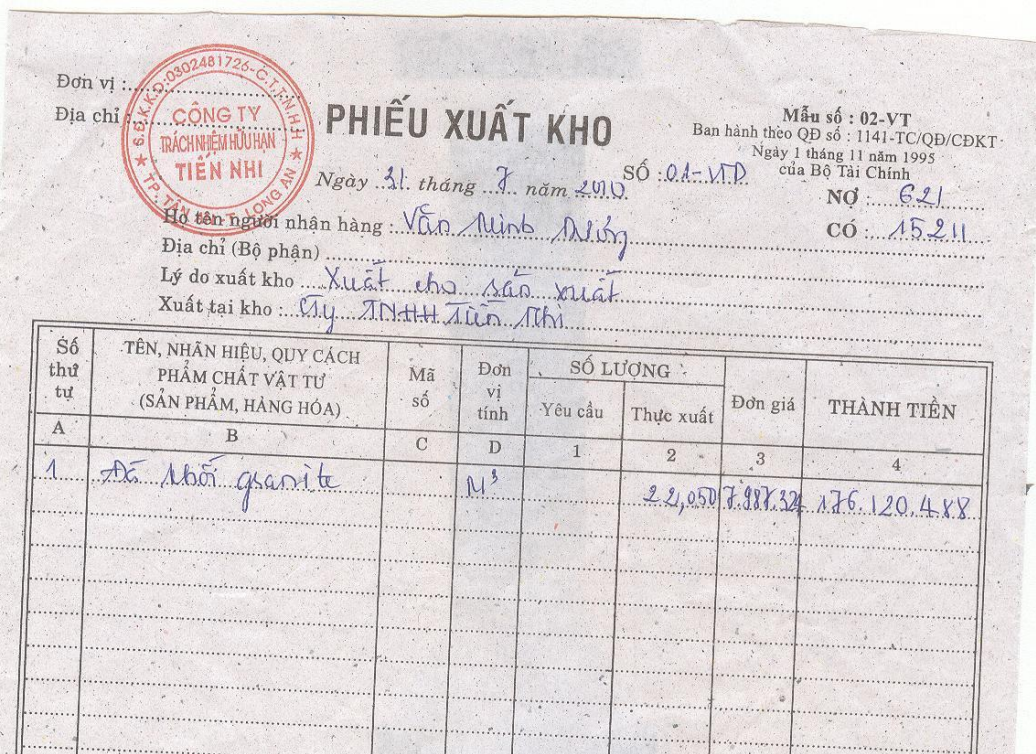 Đơn vị :
Địa chỉ :
G.Đ.K.K.D:0302481726-C.T.T.N.H.H
CÔNG TY
TRÁCH NHIỆM HỮU HẠN
TIẾN NHI
TP. TÂN AN - T. LONG AN
PHIẾU XUẤT KHO
Mẫu số : 02-VT
Ban hành theo QĐ số : 1141-TC/QĐ/CĐKT
Ngày 1 tháng 11 năm 1995
của Bộ Tài Chính
Ngày 31 tháng 7 năm 2010
SỐ : 01-VTD
NỢ : 621
CÓ : 15211
Họ tên người nhận hàng : Văn Minh
Địa chỉ (Bộ phận)
Lý do xuất kho Xuất cho sản xuất
Xuất tại kho : Cty TNHH Tiến Nhi
Số thứ tự
TÊN, NHÃN HIỆU, QUY CÁCH
PHẨM CHẤT VẬT TƯ
(SẢN PHẨM, HÀNG HÓA)
Mã số
Đơn vị tính
SỐ LƯỢNG
Yêu cầu
Thực xuất
Đơn giá
THÀNH TIỀN
A B C D 1 2 3 4
1 Đá khối granite M³ 22,050 7.987.324 176.120.488